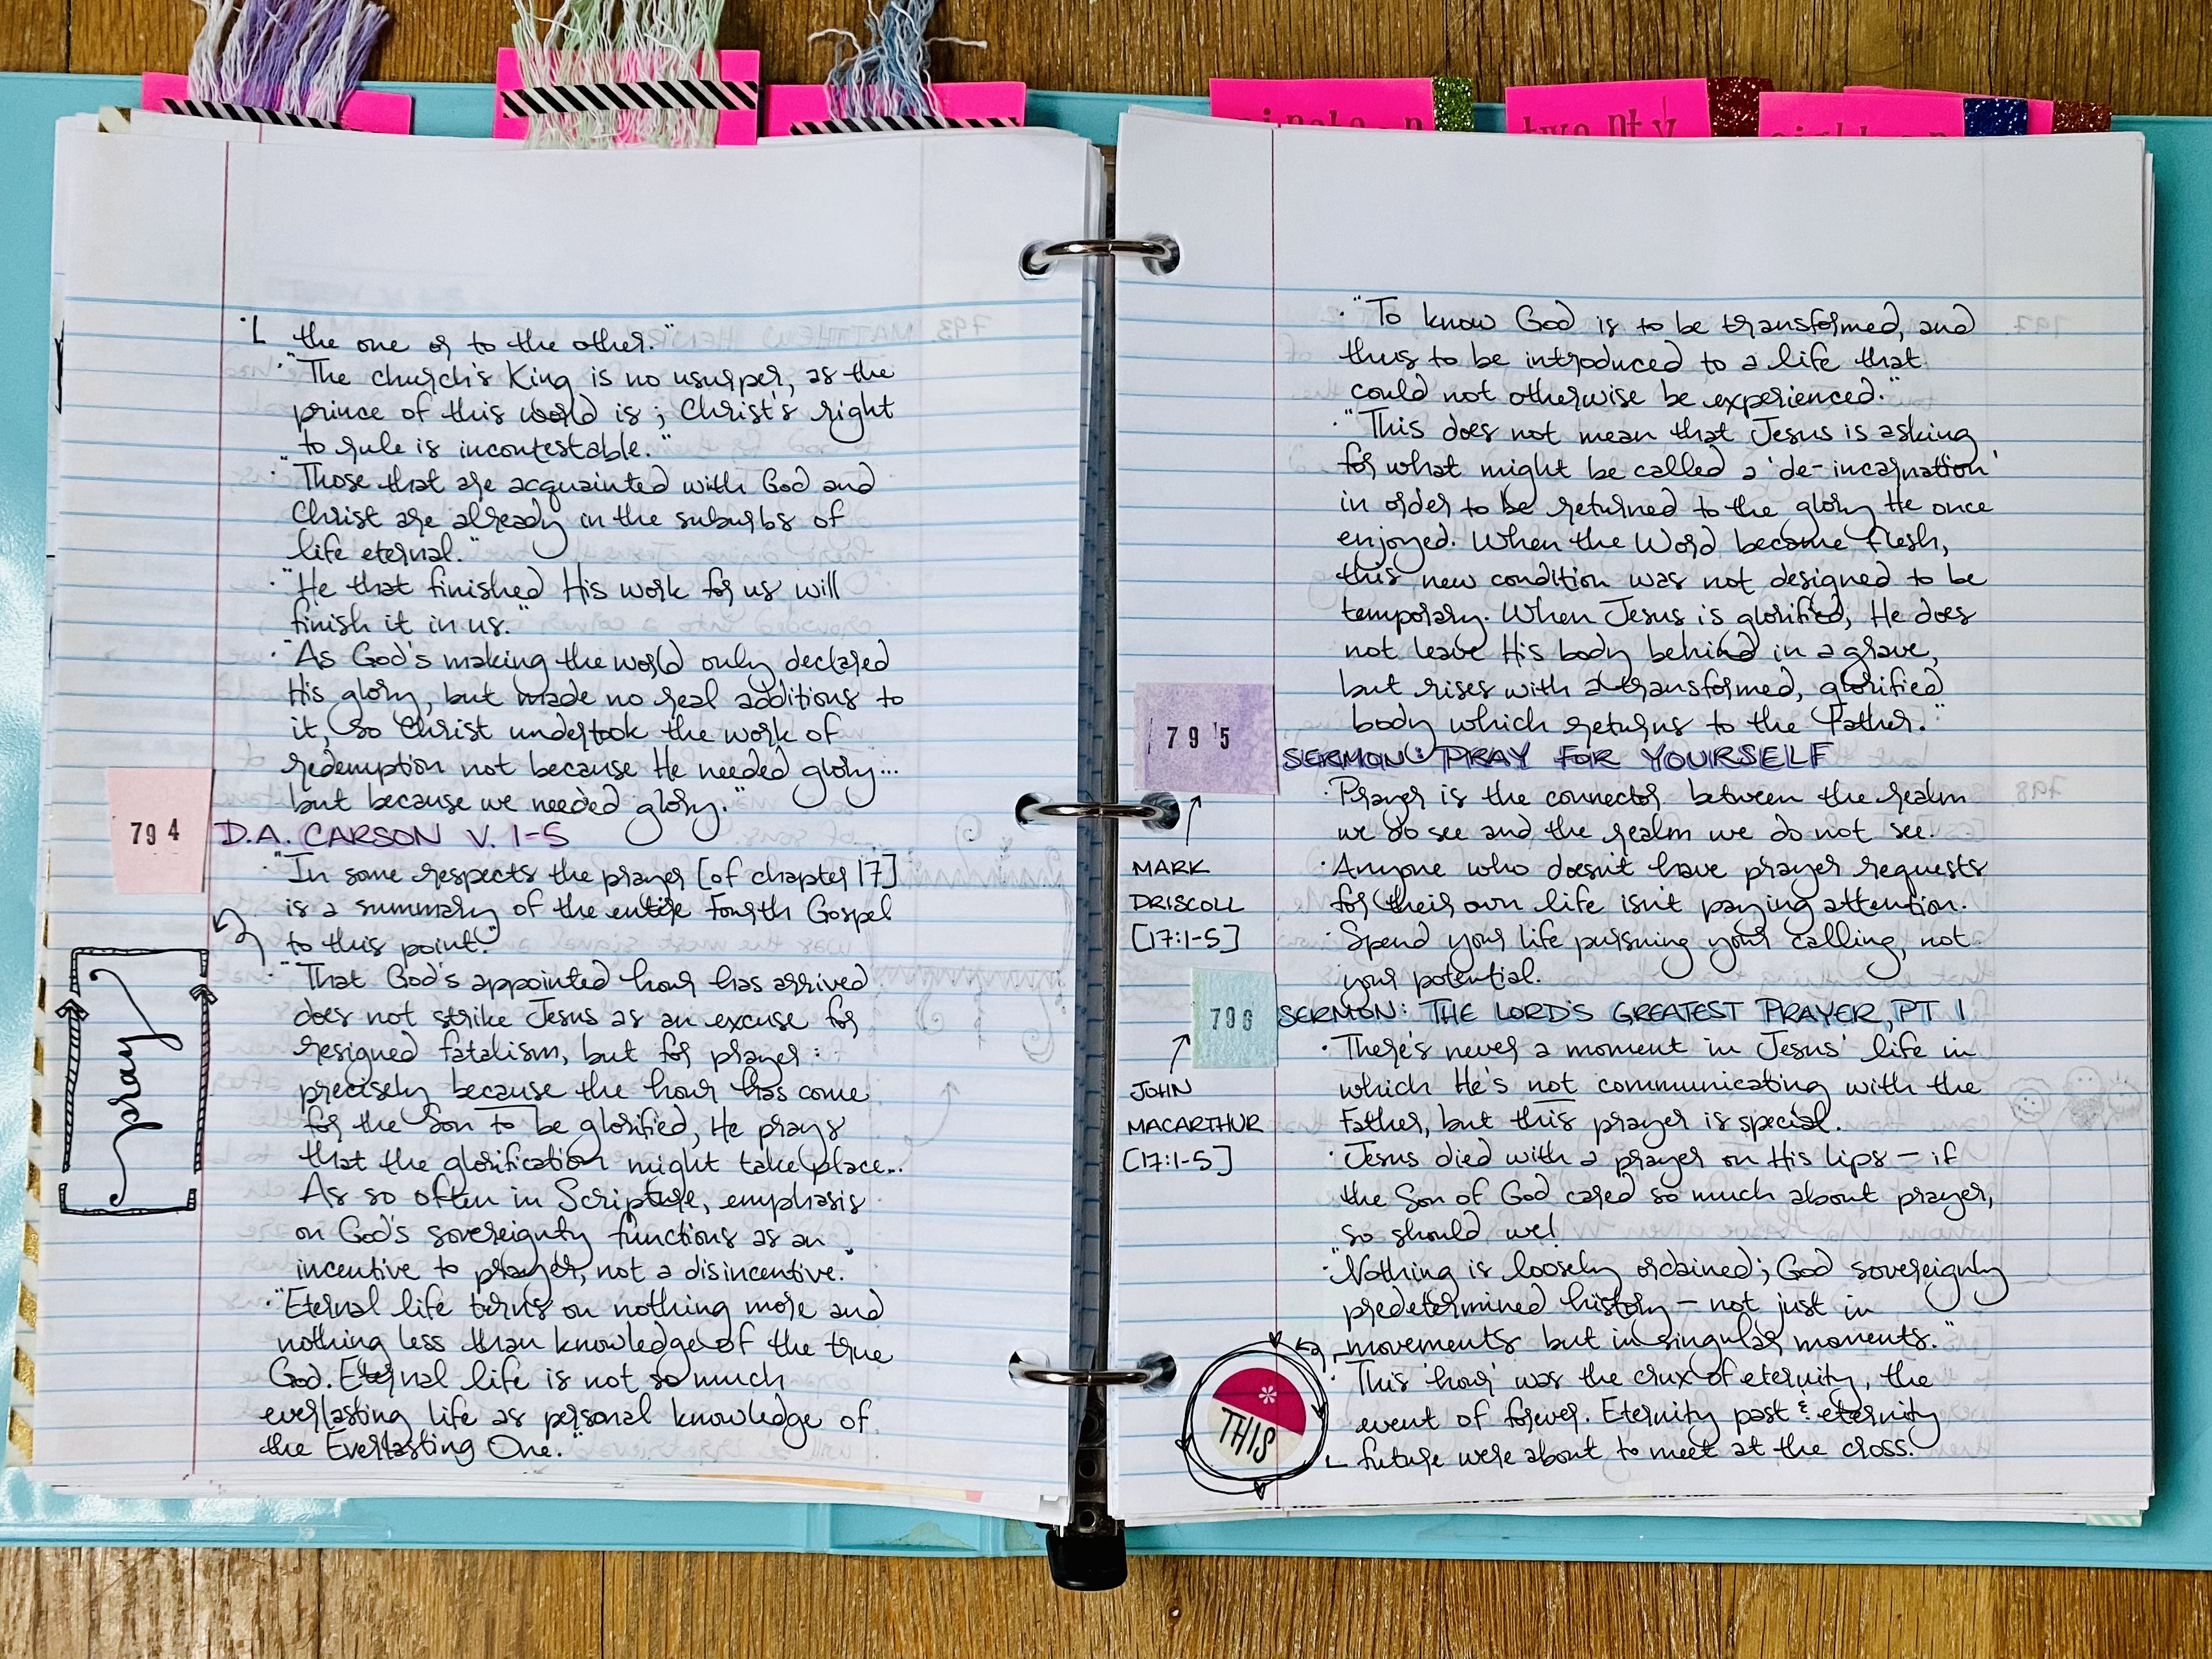 the one or to the other."
· "The church's King is no usurper, as the
prince of this world is; Christ's right
to rule is incontestable."
· "Those that are acquainted with God and
Christ are already in the suburbs of
life eternal."
· "He that finished His work for us will
finish it in us."
· "As God's making the world only declared
His glory, but made no real additions to
it, so Christ undertook the work of
redemption not because He needed glory...
but because we needed glory."
794
D.A. CARSON V. 1-5
· "In some respects the prayer [of chapter 17]
is a summary of the entire Fourth Gospel
to this point."
pray
· "That God's appointed hour has arrived
does not strike Jesus as an excuse for
resigned fatalism, but for prayer:
precisely because the hour has come
for the Son to be glorified, He prays
that the glorification might take place...
As so often in Scripture, emphasis
on God's sovereignty functions as an
incentive to prayer, not a disincentive."
· "Eternal life turns on nothing more and
nothing less than knowledge of the true
God. Eternal life is not so much
everlasting life as personal knowledge of
the Everlasting One."
twenty
· "To know God is to be transformed, and
thus to be introduced to a life that
could not otherwise be experienced."
· "This does not mean that Jesus is asking
for what might be called a 'de-incarnation'
in order to be returned to the glory He once
enjoyed. When the Word became flesh,
this new condition was not designed to be
temporary. When Jesus is glorified, He does
not leave His body behind in a grave,
but rises with a transformed, glorified
body which returns to the Father."
795
SERMON: PRAY FOR YOURSELF
MARK
DRISCOLL
[17:1-5]
· Prayer is the connector between the realm
we do see and the realm we do not see.
· Anyone who doesn't have prayer requests
for their own life isn't paying attention.
· Spend your life pursuing your calling, not
your potential.
796
SERMON: THE LORD'S GREATEST PRAYER, PT 1
JOHN
MACARTHUR
[17:1-5]
· There's never a moment in Jesus' life in
which He's not communicating with the
Father, but this prayer is special.
· Jesus died with a prayer on His lips — if
the Son of God cared so much about prayer,
so should we!
· "Nothing is loosely ordained; God sovereignly
predetermined history — not just in
movements but in singular moments."
* THIS
· This 'hour' was the crux of eternity, the
event of forever. Eternity past & eternity
future were about to meet at the cross.